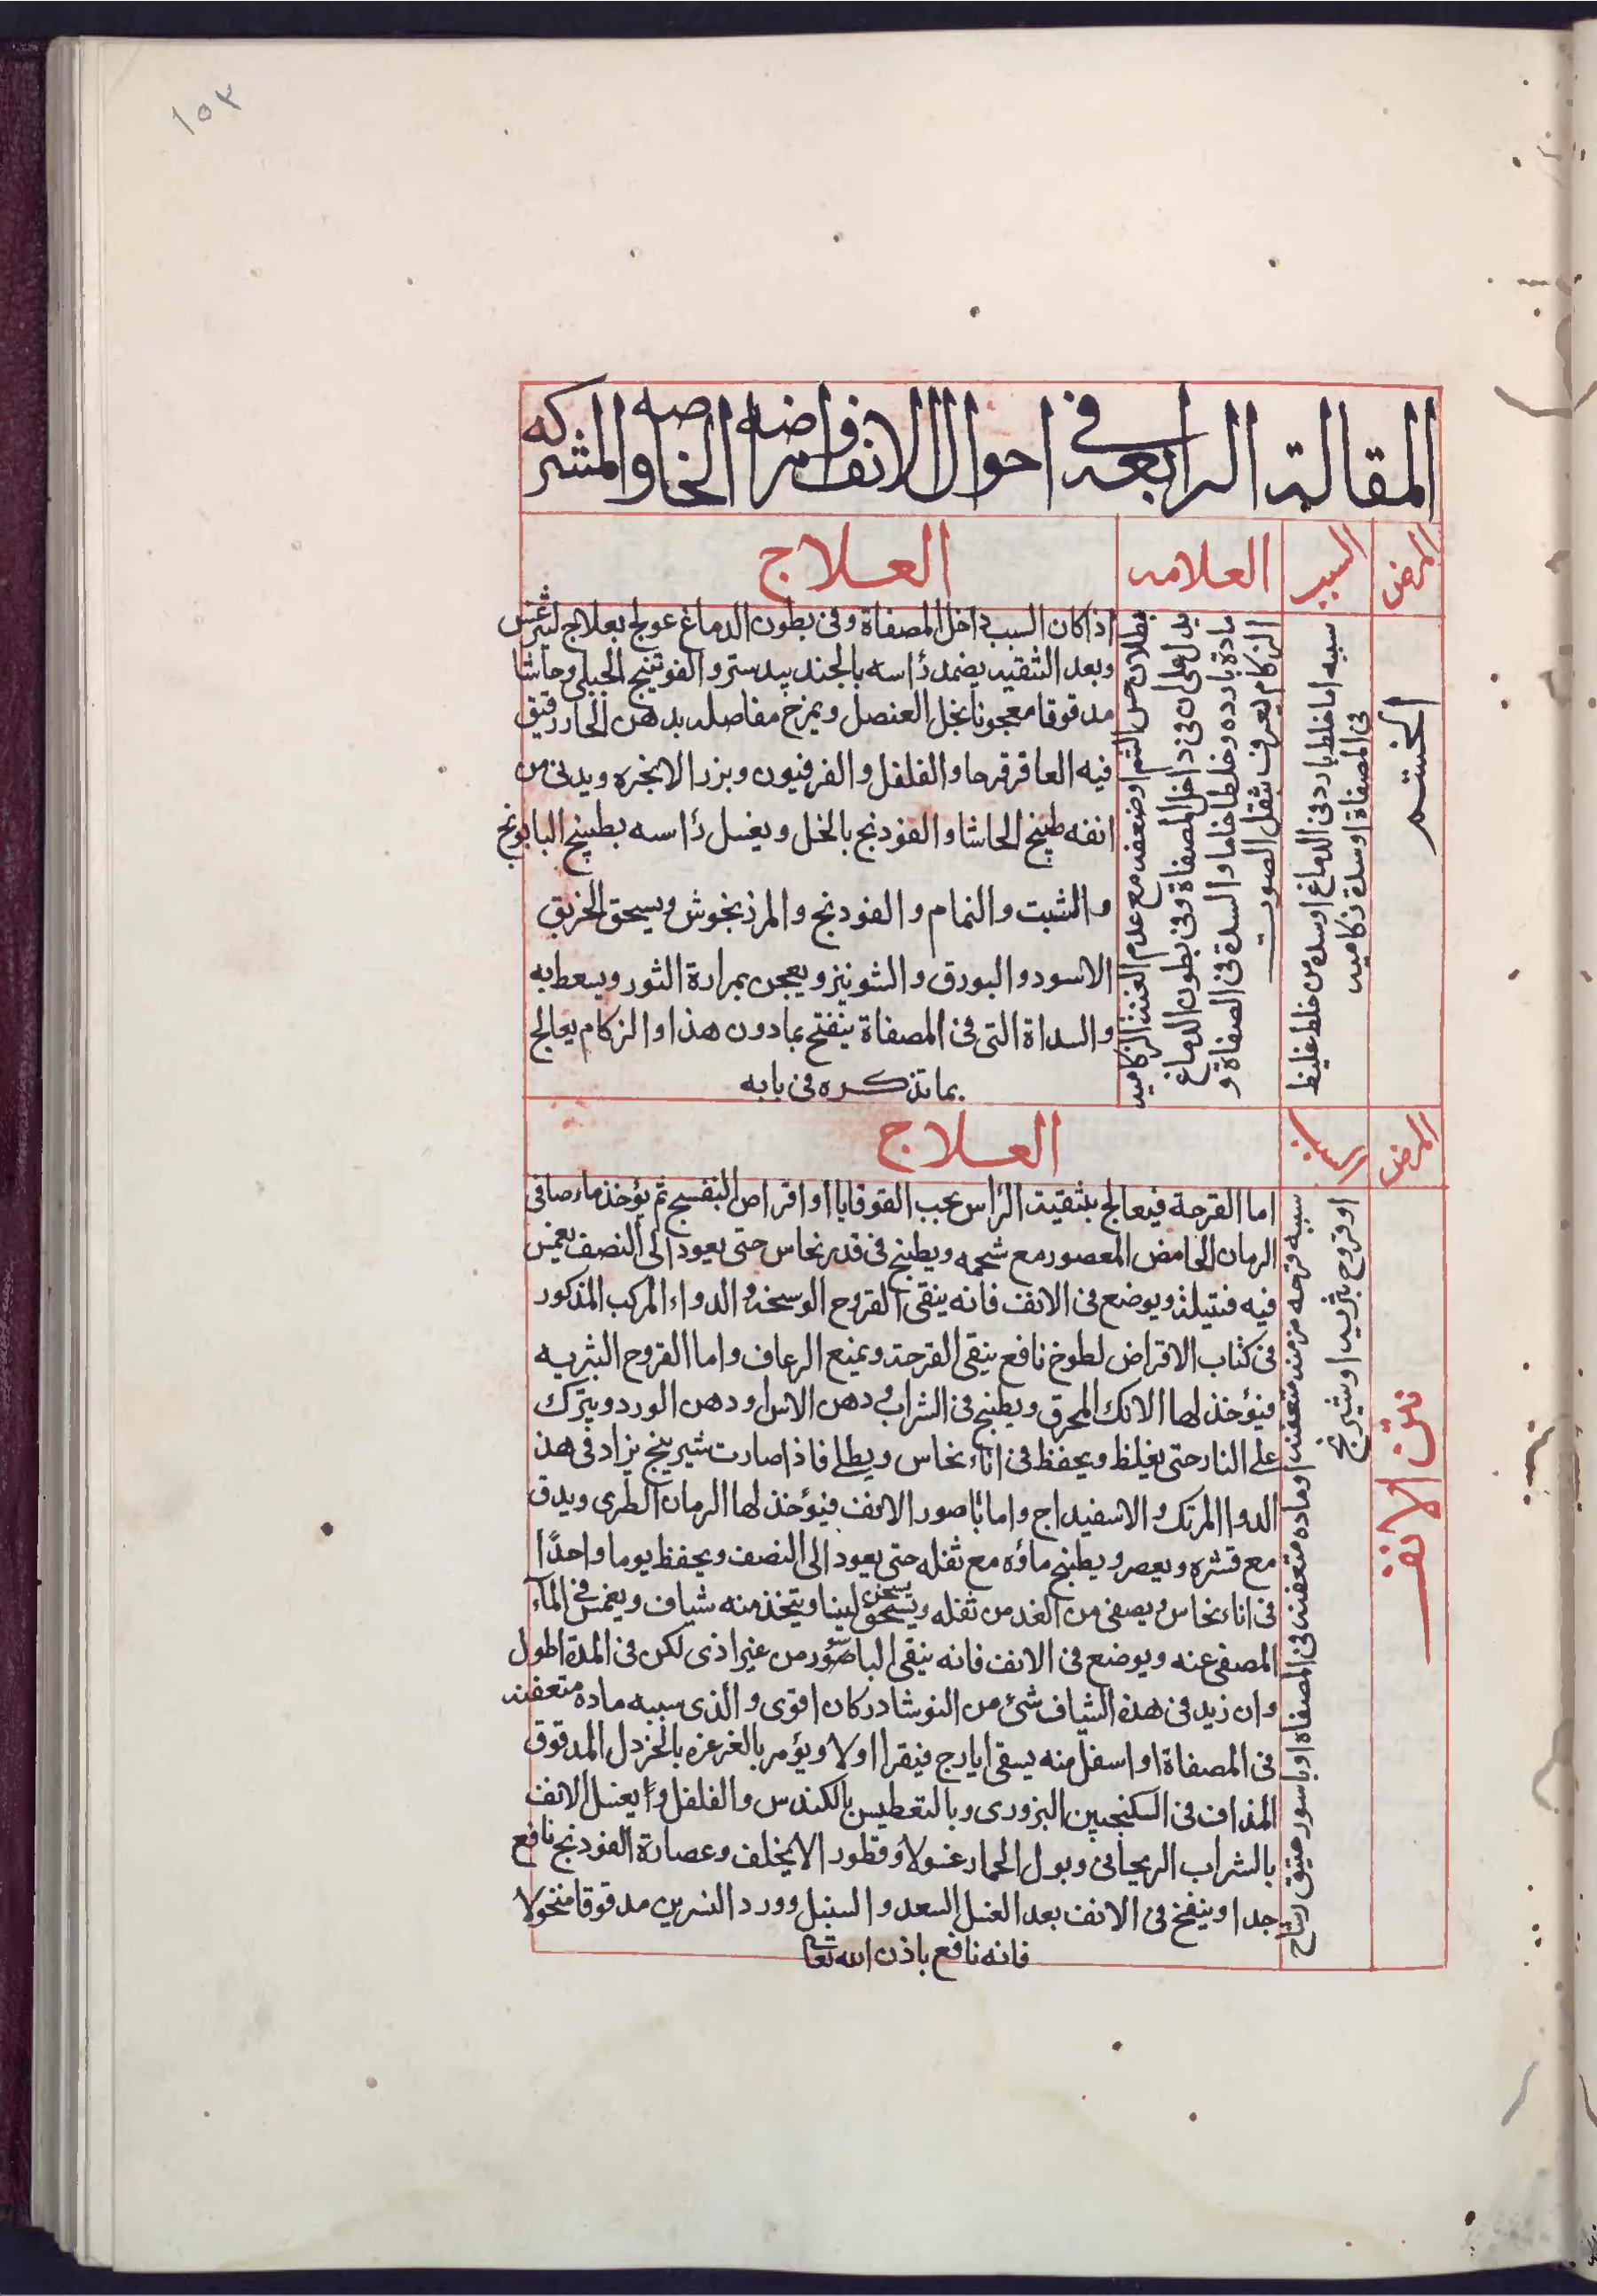 ١٥٣
المقالة الرابعه في احوال الانف وامراضه الخاصه والمشتركه
المرض
السبب
العلامه
العلاج
الخشم
سببه اما خلط بارد في الدماغ او سدة من خلط غليظ
في المصفاة او سدة زكاميه
بطلان حس الشم او ضعفه مع عدم الغنة الزكاميه
يدل على ان في داخل المصفاة وفي بطون الدماغ
مادة بارده وخلطا خاما والسدة في الصفاة و
الزكام يعرف بثقل الصوت
اذا كان السبب داخل المصفاة وفي بطون الدماغ عولج بعلاج ليثرغس
وبعد التنقيه يضمد رأسه بالجند بيدستر والفوتنج الجبلي وحاشا
مدقوقا معجونا بخل العنصل ويمرخ مفاصله بدهن الحار رقيق
فيه العاقرقرحا والفلفل والفرفيون وبزر الانجره ويدنى من
انفه طبيخ الحاشا والفودنج بالخل ويغسل رأسه بطبيخ البابونج
والشبت والنمام والفودنج والمرزنجوش ويسحق الخربق
الاسود والبورق والشونيز ويعجن بمرارة الثور ويسعط به
والسداة التي في المصفاة ينفتح بما دون هذا والزكام يعالج
بما تذكره في بابه
المرض
السبب
العلاج
نتن الانف
سببه قرحه مزمنه متعفنه او ماده متعفنه في المصفاة او باسور عتيق رشاح
او قروح بثريه او شيرينج
اما القرحة فيعالج بتنقية الرأس بحب القوقايا او اقراص البنفسج ثم يؤخذ ماء صافي
الرمان الحامض المعصور مع شحمه ويطبخ في قدر نحاس حتى يعود الى النصف يغمس
فيه فتيلة ويوضع في الانف فانه ينقى القروح الوسخة والدواء المركب المذكور
في كتاب الاقراض لطوخ نافع ينقى القرحة ويمنع الرعاف واما القروح البثريه
فيؤخذ لها الانك المحرق ويطبخ في الشراب ودهن الاس او دهن الورد ويترك
على النار حتى يغلظ ويحفظ في اناء نحاس ويطلى فاذا صارت شيرينج يزاد في هذ
الدوا المرتك والاسفيداج واما باصور الانف فيؤخذ لها الرمان الطرى ويدق
مع قشره ويعصر ويطبخ ماؤه مع ثفله حتى يعود الى النصف ويحفظ يوما واحدًا
في اناء نحاس ويصفى من الغد من ثفله ويسحق لينا ويتخذ منه شياف ويغمس في المآء
المصفى عنه ويوضع في الانف فانه ينقى الباصور من غير اذى لكن في المدة اطول
وان زيد في هذه الشياف شئ من النوشادر كان اقوى والذى سببه ماده متعفنه
في المصفاة او اسفل منه يسقى ايارج فيقرا اولا ويؤمر بالغرغره بالخردل المدقوق
المذاف في السكنجبين البزورى وبالتعطيس بالكندس والفلفل يغسل الانف
بالشراب الريحاني وبول الحمار غسولا وقطور الا يخلف وعصارة الفودنج نافع
جدا وينفخ في الانف بعد الغسل السعد والسنبل وورد النسرين مدقوقا منخولا
فانه نافع باذن الله تعا